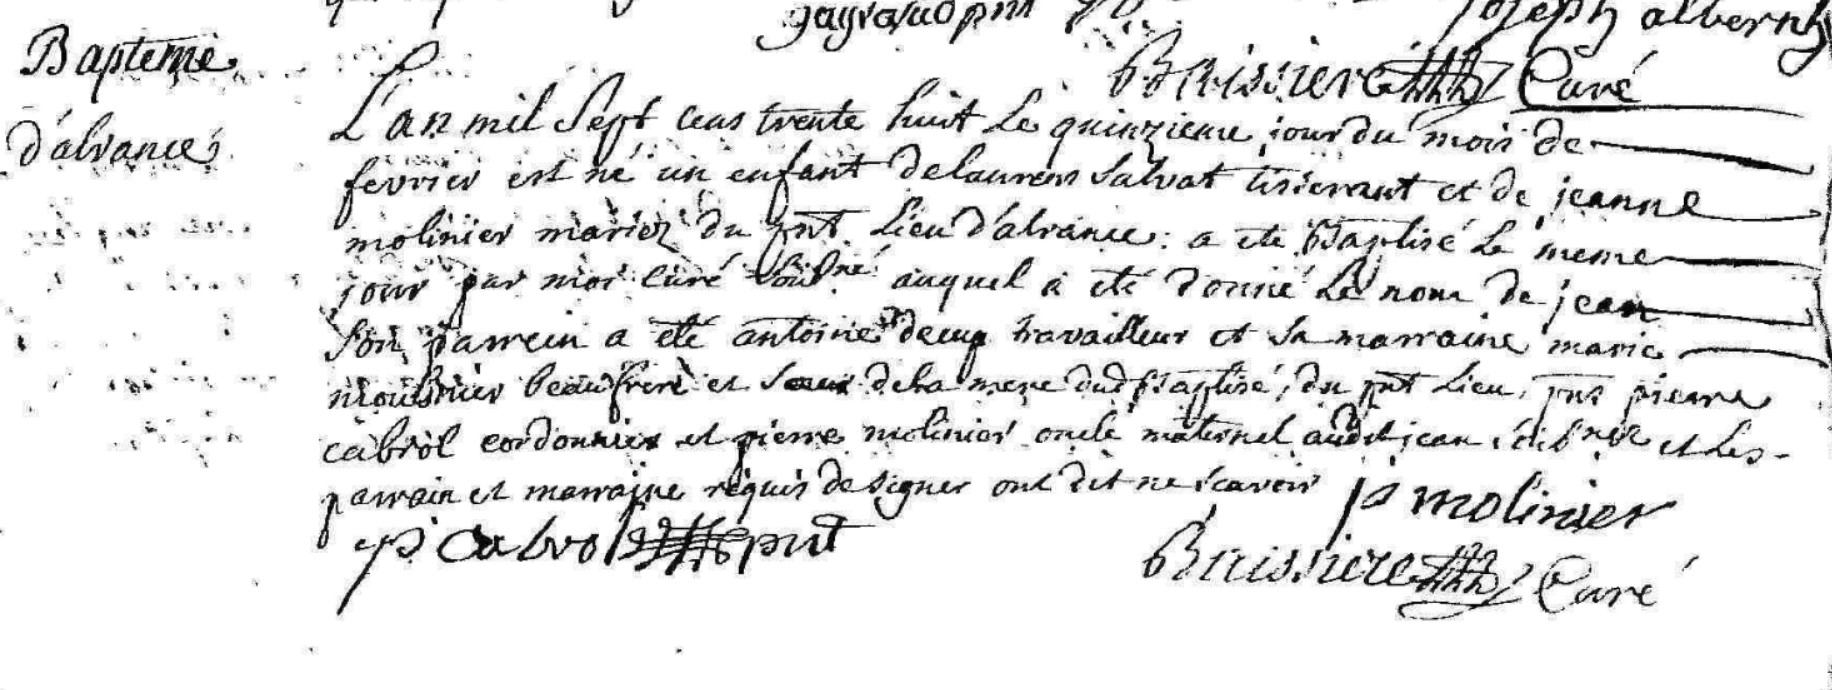 gayraud pnt joseph albernh
Buissiere Curé
Bapteme
d'alrance
L'an mil Sept cens trente huit Le quinzieme jour du mois de
fevrier est né un enfant de laurens Salvat tisserant et de jeanne
molinier mariez du pnt Lieu d'alrance : a eté Baptisé Le meme
jour par moi curé soubné auquel a eté donné Le nom de jean
son parrein a eté antoine travailleur et sa marraine marie
moulinier beaufrere et soeur de la mere dud Baptisé, du pnt Lieu, pns pierre
cabrol cordonnier et pierre molinier oncle maternel audit jean et Les
parrain et marraine requis de signer ont dit ne scavoir p molinier
p Cabrol pnt
Buissiere Curé